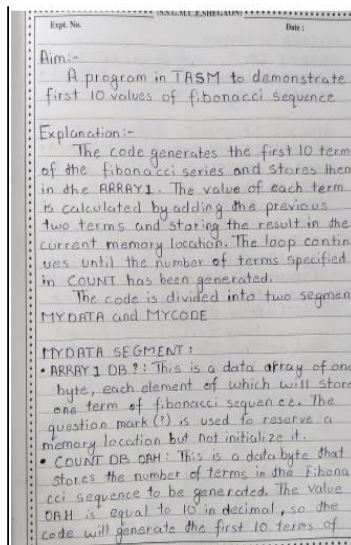 (S.S.G.M.C.E.SHEGAON)
Expt. No.
Date :
Aim:-
A program in TASM to demonstrate
first 10 values of fibonacci sequence
Explanation:-
The code generates the first 10 term
of the fibonacci series and stores then
in the ARRAY1. The value of each term
is calculated by adding the previous
two terms and storing the result in the
current memory location. The loop contin
ues until the number of terms specified
in COUNT has been generated.
The code is divided into two segmen
MYDATA and MYCODE
MYDATA SEGMENT:
• ARRAY1 DB ?: This is a data array of one
byte, each element of which will store
one term of fibonacci sequence. The
question mark (?) is used to reserve a
memory location but not initialize it.
• COUNT DB 0AH: This is a data byte that
stores the number of terms in the Fibona
cci sequence to be generated. The value
0AH is equal to 10 in decimal, so the
code will generate the first 10 terms of